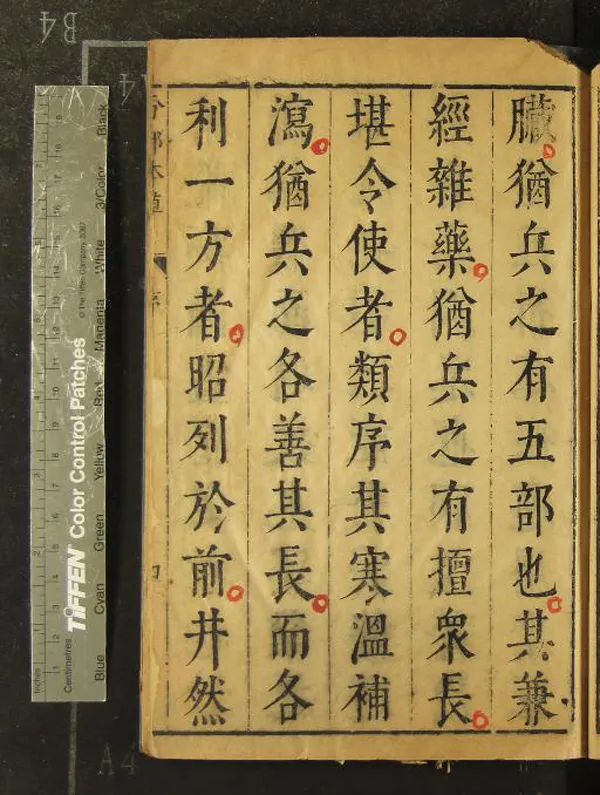 臟猶兵之有五部也其兼
經雜藥猶兵之有擅衆長
堪令使者類序其寒溫補
瀉猶兵之各善其長而各
利一方者昭列於前井然
B4
A4
A4
Inches
Centimetres
TIFFEN Color Control Patches
© The Tiffen Company, 2007
Blue Cyan Green Yellow Red Magenta White 3/Color Black